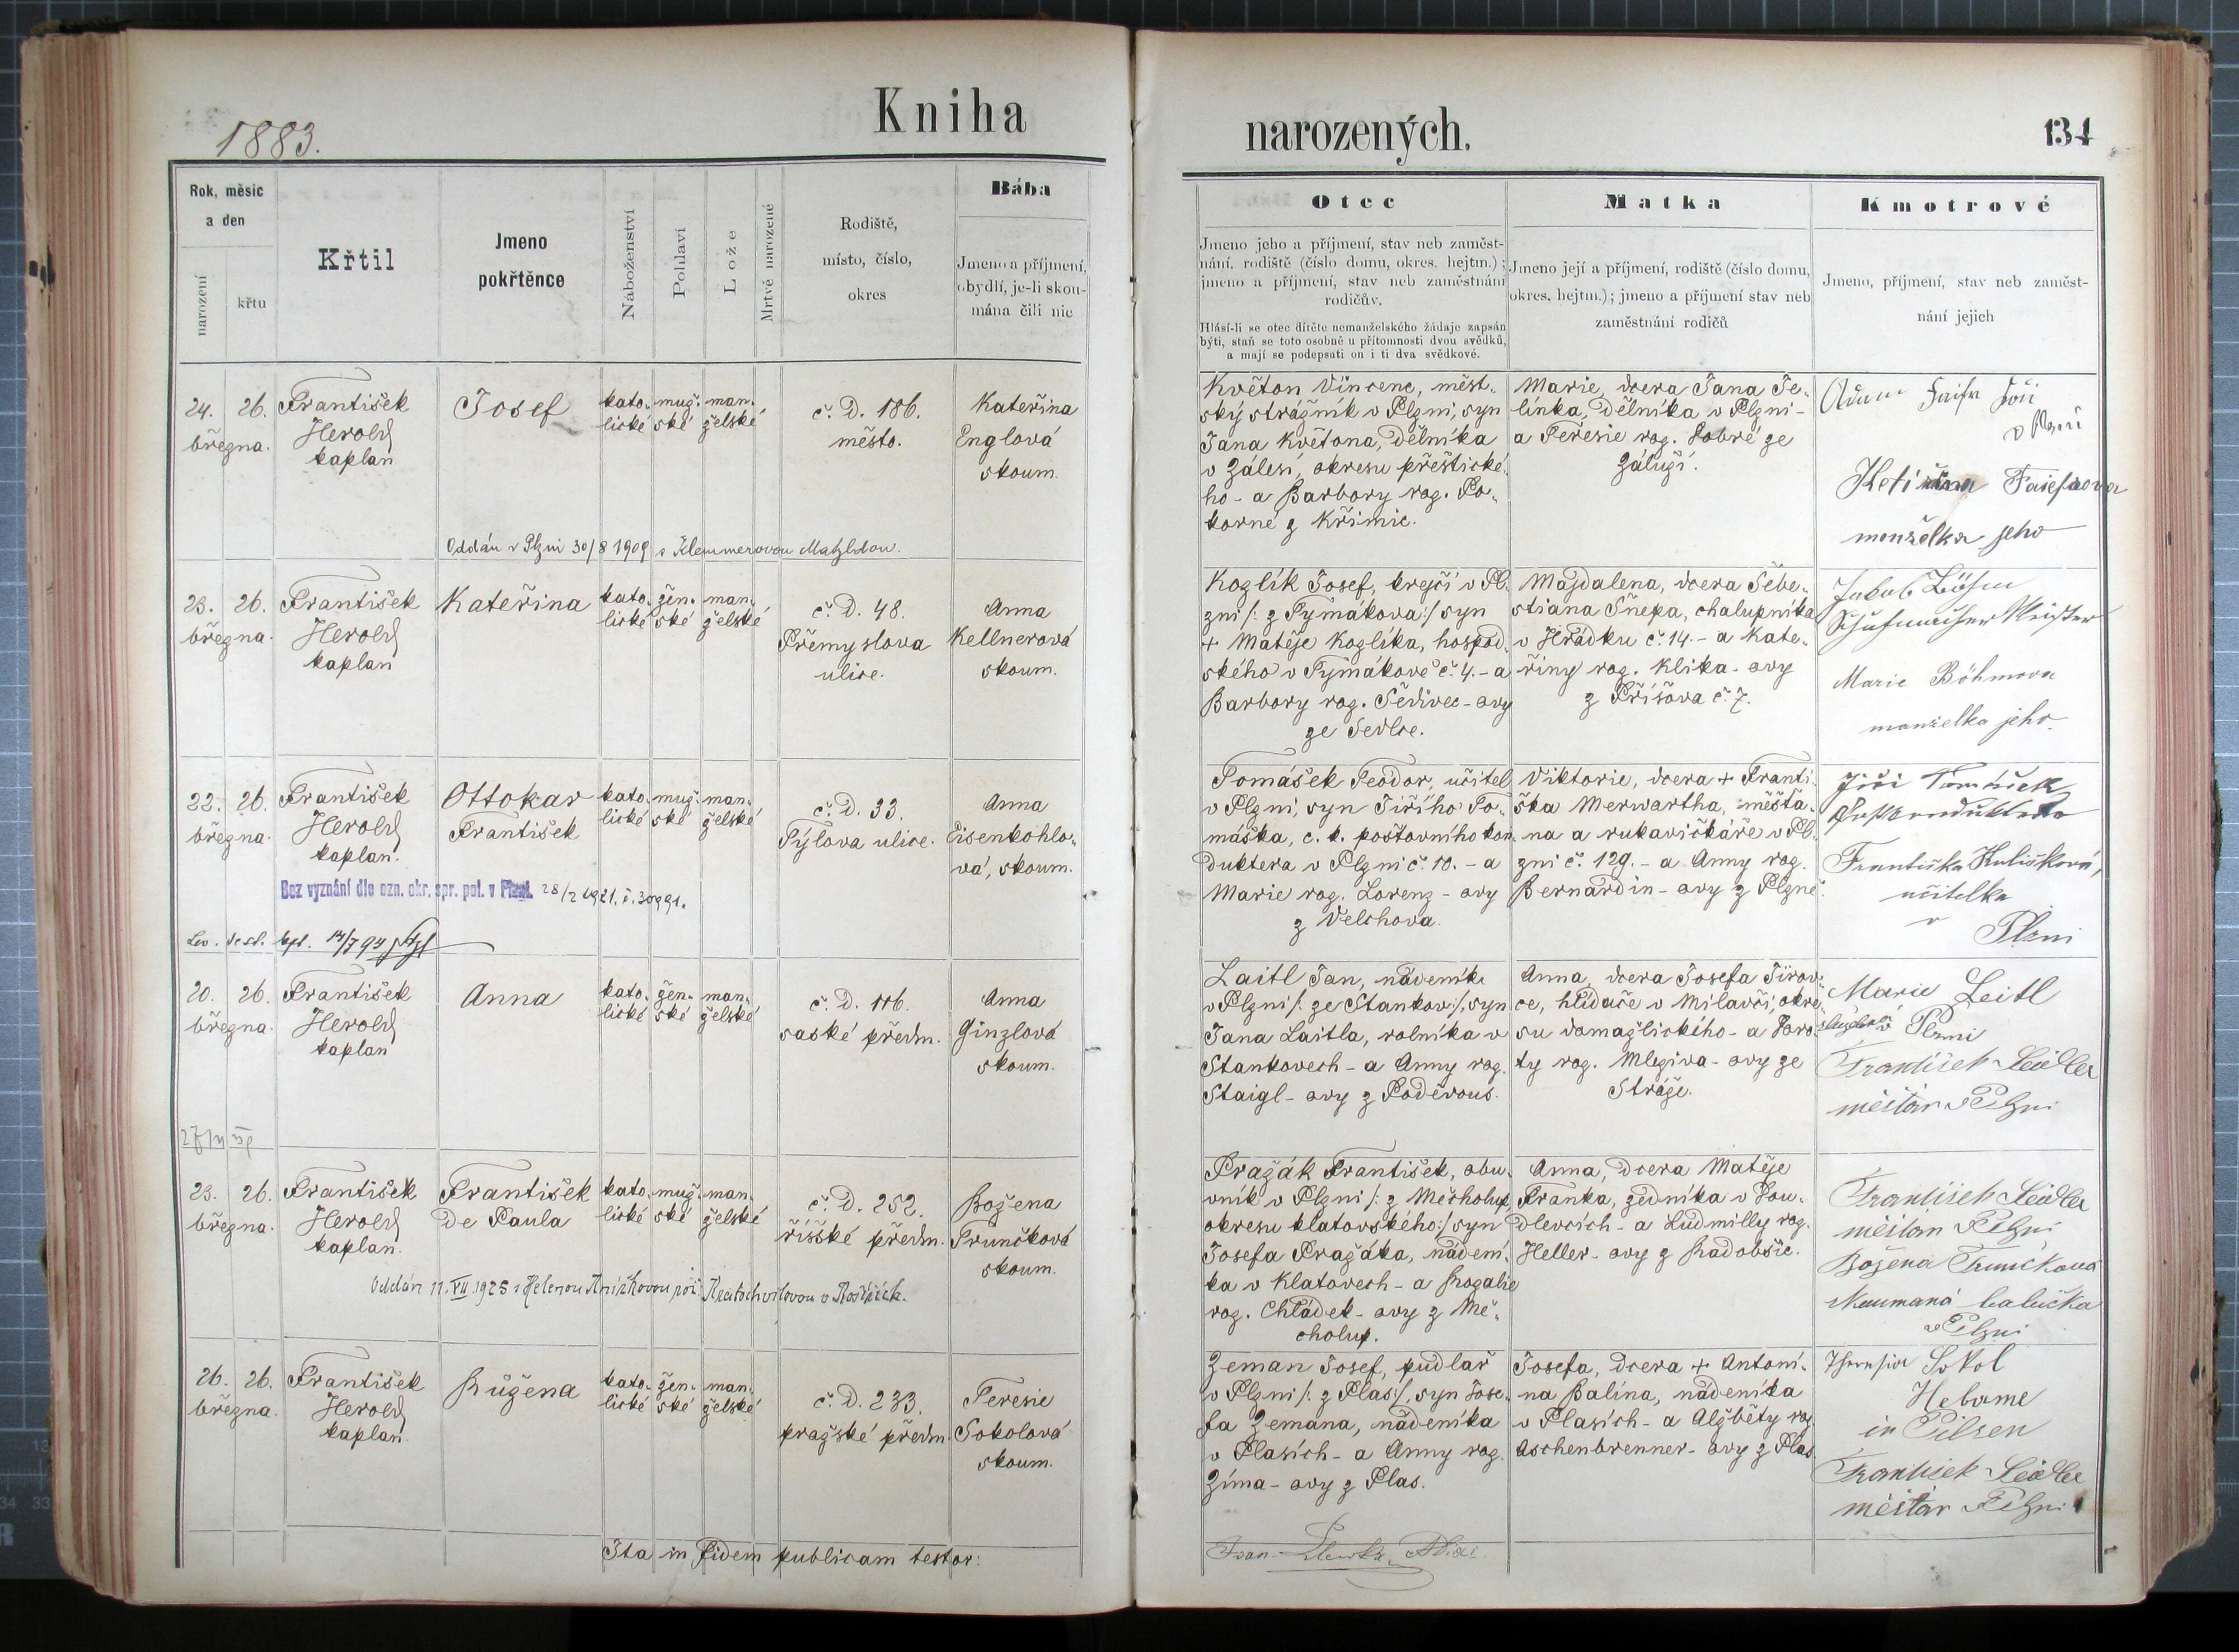 1883.
Kniha
narozených.
134
Rok, měsíc
a den
narození
křtu
Křtil
Jmeno
pokřtěnce
Náboženství
Pohlaví
Lože
Mrtvě narozené
Rodiště,
místo, číslo,
okres
Bába
Jmeno a příjmení,
obydlí, je-li skou-
mána čili nic
Otec
Jmeno jeho a příjmení, stav neb zaměst-
nání, rodiště (číslo domu, okres. hejtm.);
jmeno a příjmení, stav neb zaměstnání
rodičův.
Hlásí-li se otec dítěte nemanželského žádaje zapsán
býti, staň se toto osobně u přítomnosti dvou svědků,
a mají se podepsati on i ti dva svědkové.
Matka
Jmeno její a příjmení, rodiště (číslo domu,
okres. hejtm.); jmeno a příjmení stav neb
zaměstnání rodičů
Kmotrové
Jmeno, příjmení, stav neb zaměst-
nání jejich
24. 26.
března.
František
Herold
kaplan
Josef
kato-
lické
muž-
ské
man-
želské
č. D. 186.
město.
Kateřina
Englová
skoum.
Květon Vincenc, měst-
ský strážník v Plzni, syn
Jana Květona, dělníka
v Zálesí, okresu přeštické-
ho - a Barbory roz. Po-
korné z Křimic.
Marie, dcera Jana Je-
línka, dělníka v Plzni -
a Terezie roz. Dobré ze
Záluží.
Adam
v Plzni
manželka jeho
Oddán v Plzni 30/8 1909 s Klemmerovou Matyldou.
23. 26.
března.
František
Herold
kaplan
Kateřina
kato-
lické
žen-
ské
man-
želské
č. D. 48.
Přemyslova
ulice.
Anna
Kellnerová
skoum.
Kozlík Josef, krejčí v Pl-
zni /: z Tymákova :/ syn
+ Matěje Kozlíka, hospod-
ského v Tymákově č. 4. - a
Barbory roz. Šedivec - ovy
ze Sedlce.
Majdalena, dcera Šebe-
stiana Šnepa, chalupníka
v Hrádku č. 14. - a Kate-
řiny roz. Klika - ovy
z Příšova č. 7.
Jakob Böhm
Schuhmacher Meister
Marie Böhmova
manželka jeho
22. 26.
března.
František
Herold
kaplan.
Ottokar
František
kato-
lické
muž-
ské
man-
želské
č. D. 33.
Týlova ulice.
Anna
Eisenkohlo-
vá, skoum.
Tomášek Teodor, učitel
v Plzni, syn Jiřího To-
máška, c. k. poštovního kon-
duktera v Plzni č. 10. - a
Marie roz. Lorenz - ovy
z Velchova.
Viktorie, dcera + Franti-
ška Merwartha, měšťa-
na a rukavičkáře v Pl-
zni č. 129. - a Anny roz.
Bernardin - ovy z Plzně.
Jiří Tomášek
Františka Kulišková,
učitelka
v
Plzni
Bez vyznání dle ozn. okr. spr. pol. v Plzni. 28/2 1921. č. 30991.
20. 26.
března.
František
Herold
kaplan
Anna
kato-
lické
žen-
ské
man-
želské
č. D. 116.
saské předm.
Anna
Ginzlová
skoum.
Laitl Jan, nádeník
v Plzni /: ze Stankov :/, syn
Jana Laitla, rolníka v
Stankovech - a Anny roz.
Staigl - ovy z Poděvous.
Anna, dcera Josefa Jírov-
ce, hlídače v Milavči, okre-
su domažlického - a Doro-
ty roz. Mlezíva - ovy ze
Stráže.
Marie Leitl
v Plzni
František Seidler
měštan v Plzni
23. 26.
března.
František
Herold
kaplan.
František
de Paula
kato-
lické
muž-
ské
man-
želské
č. D. 252.
říšské předm.
Božena
Trunčková
skoum.
Pražák František, obu-
vník v Plzni /: z Měcholup,
okresu klatovského :/ syn
Josefa Pražáka, nádení-
ka v Klatovech - a Rozalie
roz. Chládek - ovy z Mě-
cholup.
Anna, dcera Matěje
Franka, zedníka v Dou-
dlevcích - a Ludmilly roz.
Heller - ovy z Radobšic.
František Seidler
měštan v Plzni
Božena Trunčková
skoumaná babička
v Plzni
Oddán 11. VII. 1925 s Helenou
26. 26.
března.
František
Herold
kaplan.
Růžena
kato-
lické
žen-
ské
man-
želské
č. D. 233.
pražské předm.
Teresie
Sokolová
skoum.
Zeman Josef, pudlař
v Plzni /: z Plas :/, syn Jose-
fa Zemana, nádeníka
v Plasích - a Anny roz.
Zíma - ovy z Plas.
Josefa, dcera + Antoni-
na Balína, nádeníka
v Plasích - a Alžběty roz.
Aschenbrenner - ovy z Plas.
Theresia Sokol
Hebame
in Pilsen
František Seidler
měštan v Plzni
Ita in fidem publicam testor: